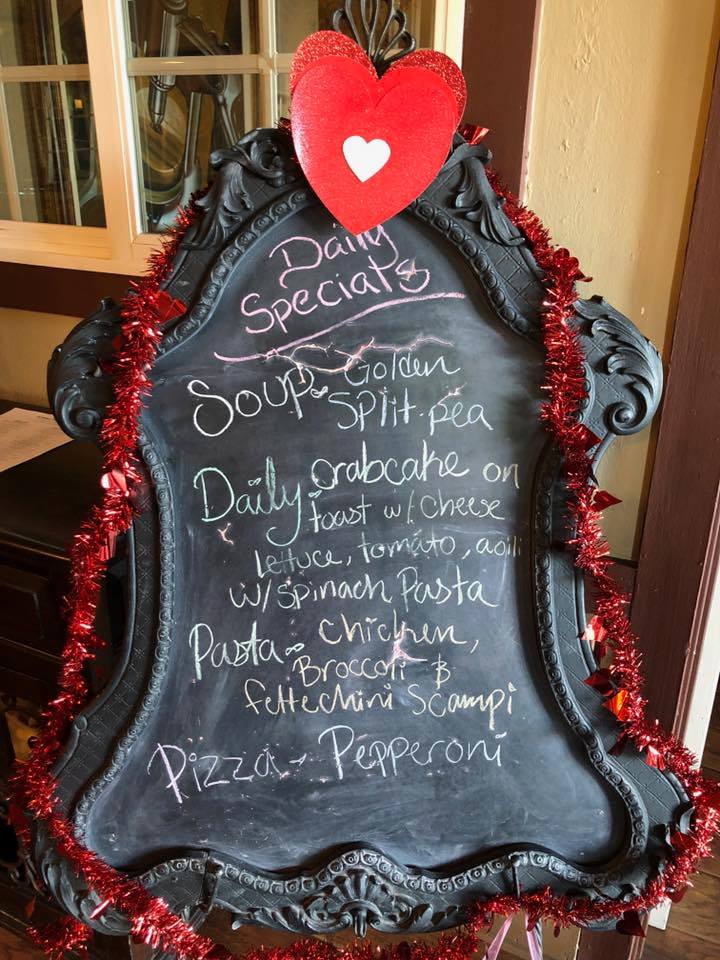 Daily
Specials
Soup - Golden
Split pea
Daily crabcake on
toast w/ cheese
lettuce, tomato, aoili
w/ spinach Pasta
Pasta - chicken,
Broccoli &
fettechini Scampi
Pizza - Pepperoni